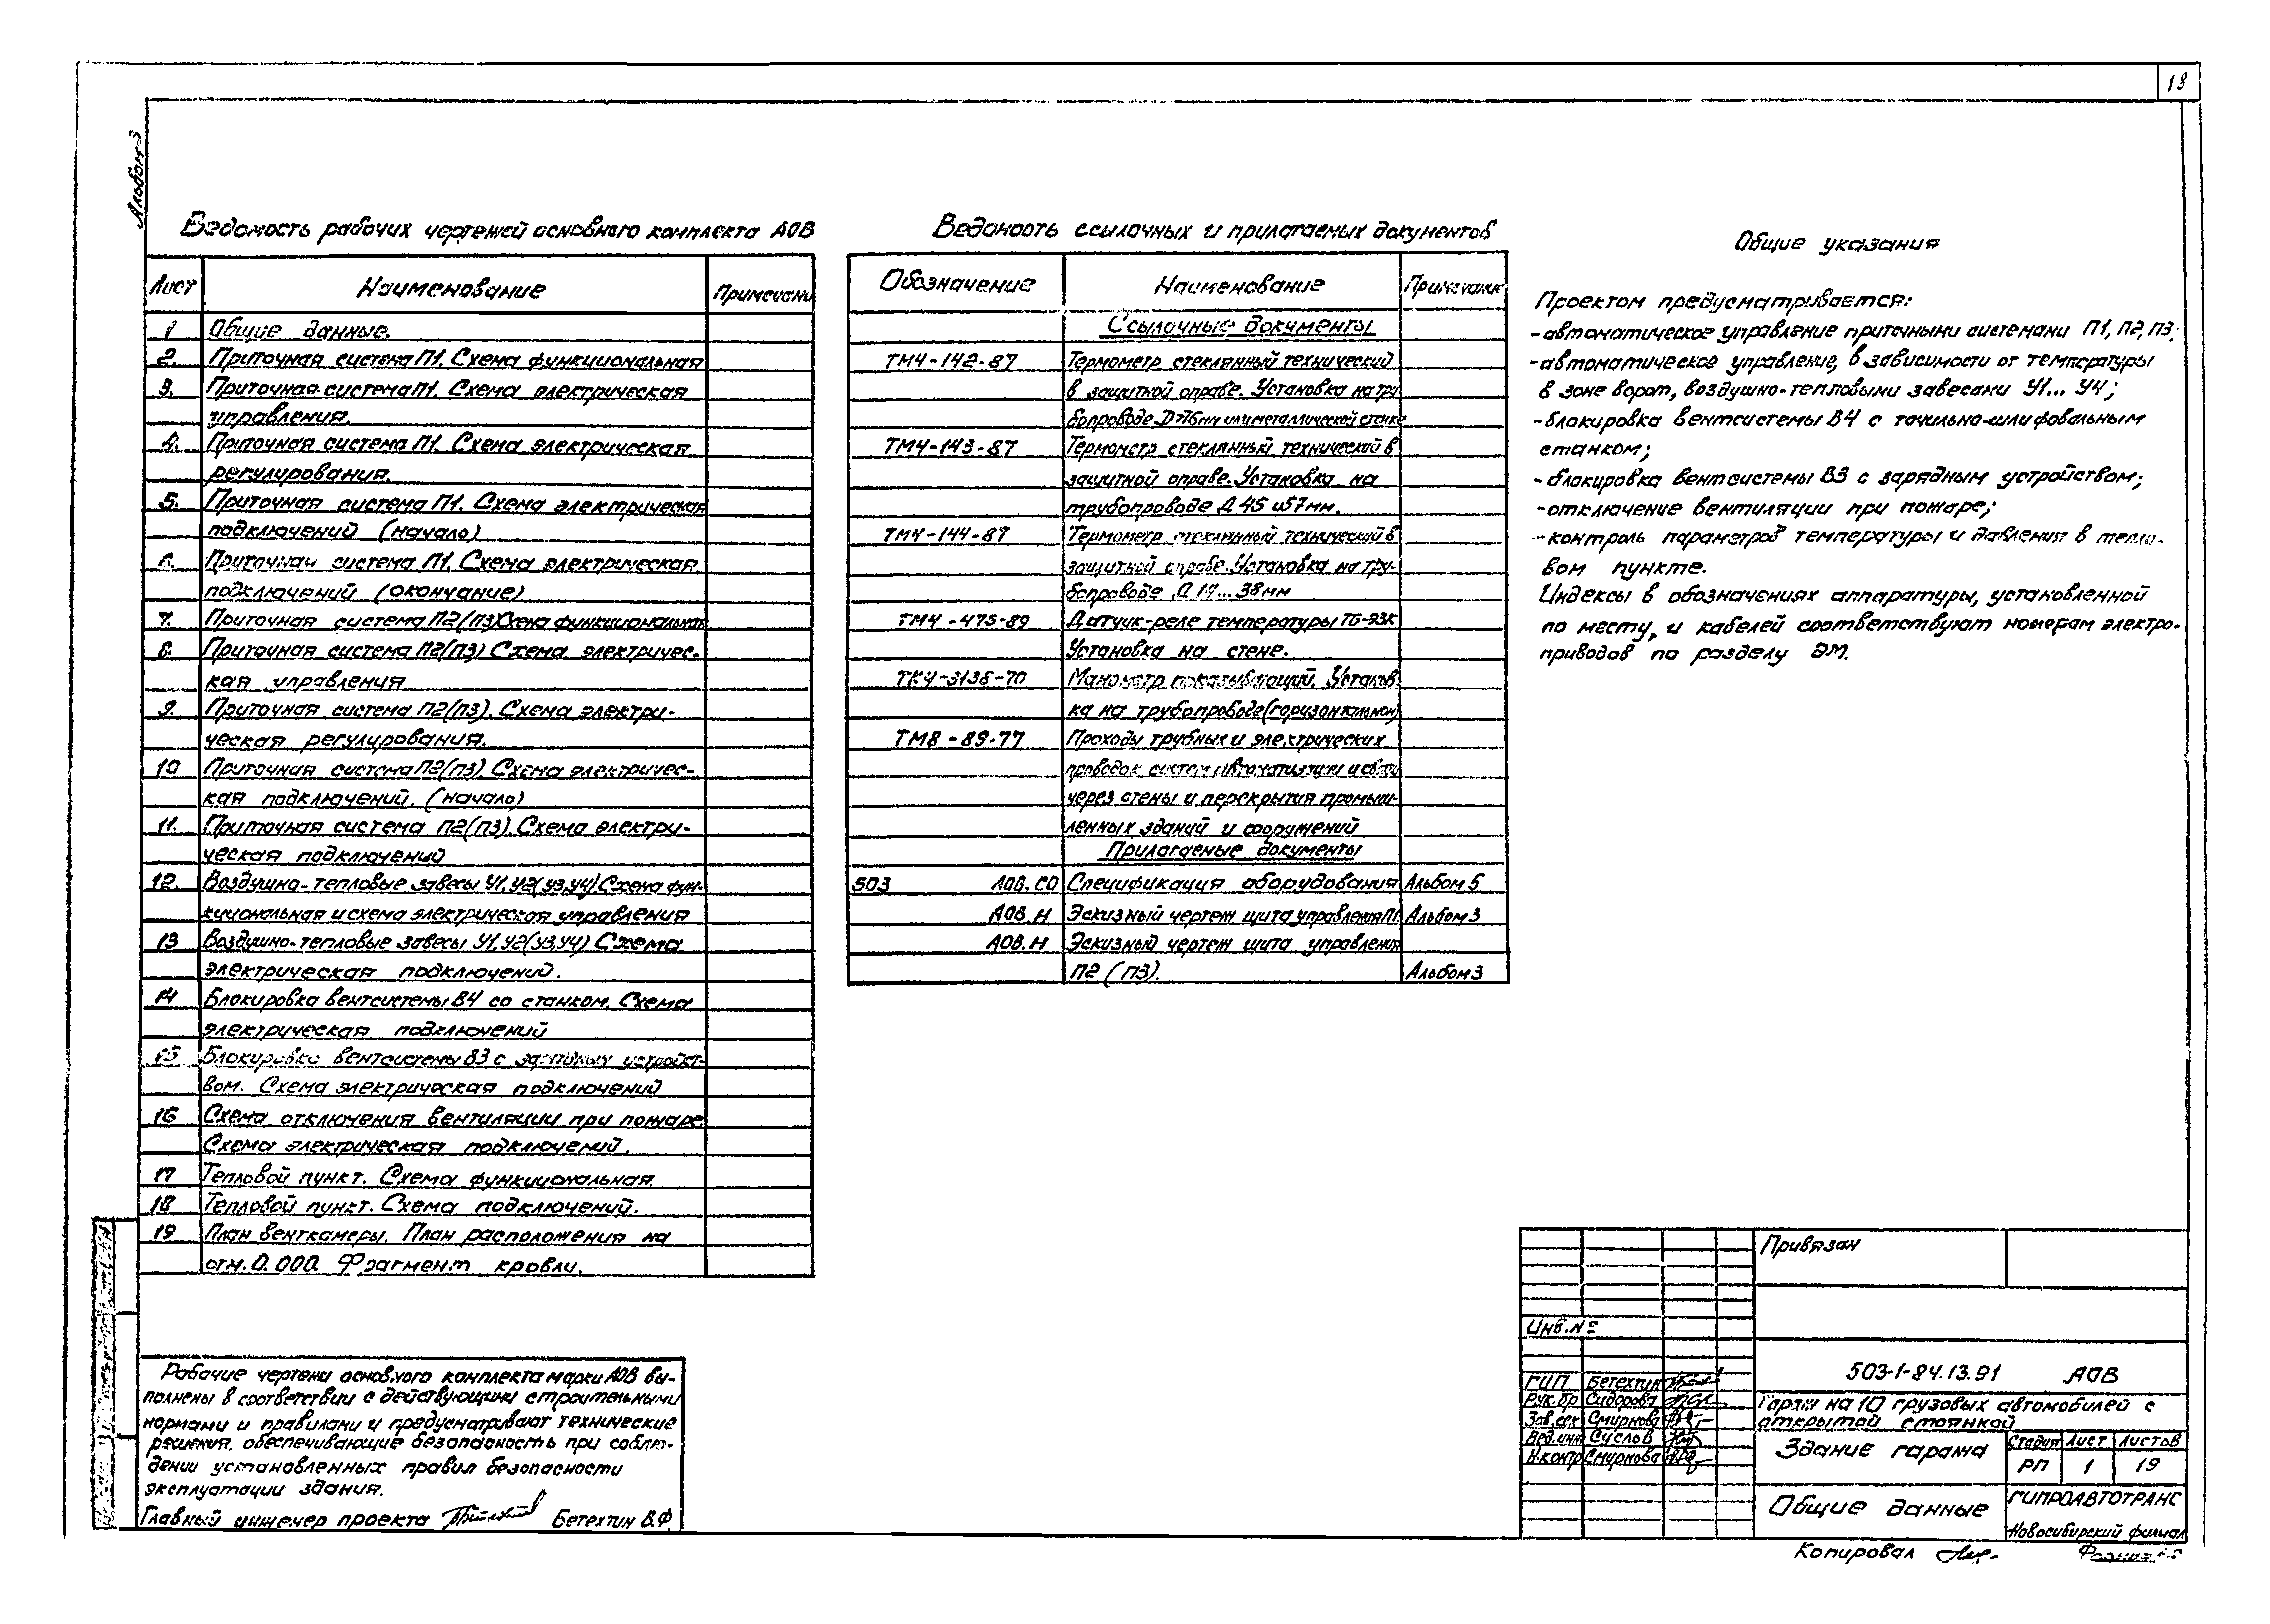 18
Альбом-3
Ведомость рабочих чертежей основного комплекта АОВ
Лист Наименование Примечани
1 Общие данные.
2. Приточная система П1. Схема функциональная
3. Приточная система П1. Схема электрическая
управления.
4. Приточная система П1. Схема электрическая
регулирования.
5. Приточная система П1. Схема электрическая
подключений (начало)
6. Приточная система П1. Схема электрическая
подключений (окончание)
7. Приточная система П2(П3) Схема функциональная
8. Приточная система П2(П3) Схема электричес-
кая управления
9. Приточная система П2(П3). Схема электри-
ческая регулирования.
10 Приточная система П2(П3). Схема электричес-
кая подключений. (начало)
11. Приточная система П2(П3). Схема электри-
ческая подключений
12. Воздушно-тепловые завесы У1,У2(У3,У4).Схема фун-
кциональная и схема электрическая управления
13 Воздушно-тепловые завесы У1,У2(У3,У4) Схема
электрическая подключений.
14 Блокировка вентсистемы В4 со станком. Схема
электрическая подключений
15 Блокировка вентсистемы В3 с зарядным устройст-
вом. Схема электрическая подключений
16 Схема отключения вентиляции при пожаре.
Схема электрическая подключений.
17 Тепловой пункт. Схема функциональная.
18 Тепловой пункт. Схема подключений.
19 План венткамеры. План расположения на
отм.0.000. Фрагмент кровли.
Рабочие чертежи основного комплекта марки АОВ вы-
полнены в соответствии с действующими строительными
нормами и правилами и предусматривают технические
решения, обеспечивающие безопасность при соблю-
дении установленных правил безопасности
эксплуатации здания.
Главный инженер проекта Бетехтин В.Ф.
Ведомость ссылочных и прилагаемых документов
Обозначение Наименование Примечание
Ссылочные документы
ТМ4-142-87 Термометр стеклянный технический
в защитной оправе. Установка на тру
бопроводе D>76мм или металлической стенке
ТМ4-143-87 Термометр стеклянный технический в
защитной оправе. Установка на
трубопроводе Д 45 и 57мм.
ТМ4-144-87 Термометр стеклянный технический в
защитной оправе. Установка на тру-
бопроводе Д 14...38мм
ТМ4-475-89 Датчик-реле температуры
Установка на стене.
ТК4-3136-70 Манометр показывающий. Установ
ка на трубопроводе(горизонтальном)
ТМ8-89-77 Проходы трубных и электрических
проводок систем автоматизации и связи
через стены и перекрытия промыш-
ленных зданий и сооружений
Прилагаемые документы
503 АОВ.СО Спецификация оборудования Альбом 5
АОВ.Н Эскизный чертеж щита управления П1 Альбом 3
АОВ.Н Эскизный чертеж щита управления
П2 (П3). Альбом 3
Общие указания
Проектом предусматривается:
-автоматическое управление приточными системами П1, П2, П3;
-автоматическое управление, в зависимости от температуры
в зоне ворот, воздушно-тепловыми завесами У1... У4;
-блокировка вентсистемы В4 с точильно-шлифовальным
станком;
-блокировка вентсистемы В3 с зарядным устройством;
-отключение вентиляции при пожаре;
-контроль параметров температуры и давления в тепло-
вом пункте.
Индексы в обозначениях аппаратуры, установленной
по месту, и кабелей соответствуют номерам электро-
приводов по разделу ЭМ.
Привязан
Инв.№
503-1-84.13.91 АОВ
ГИП Бетехтин
Рук.бр Сидорова
Зав.сек Смирнова
Вед.инж Суслов
Н.контр Смирнова
Гараж на 10 грузовых автомобилей с
открытой стоянкой
Здание гаража
Стадия Лист Листов
РП 1 19
Общие данные
ГИПРОАВТОТРАНС
Новосибирский филиал
Копировал
Формат